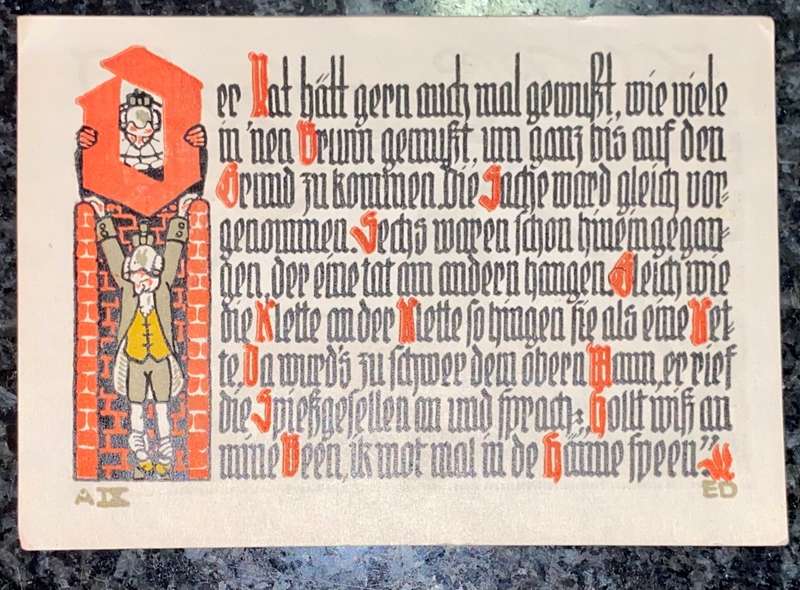 Der Rat hätt gern auch mal gewußt, wie viele
in 'nen Brunn gemußt, um ganz bis auf den
Grund zu kommen. Die Sache ward gleich vor-
genommen. Sechs waren schon hineingegan-
gen, der eine tat am andern hangen. Gleich wie
die Klette an der Klette so hingen sie als eine Ket-
te. Da wurd's zu schwer dem obern Mann, er rief
die Spießgesellen an und sprach: „Hollt wiß an
mine Been, ik mot mal in de Hänne speen."
A IX
ED